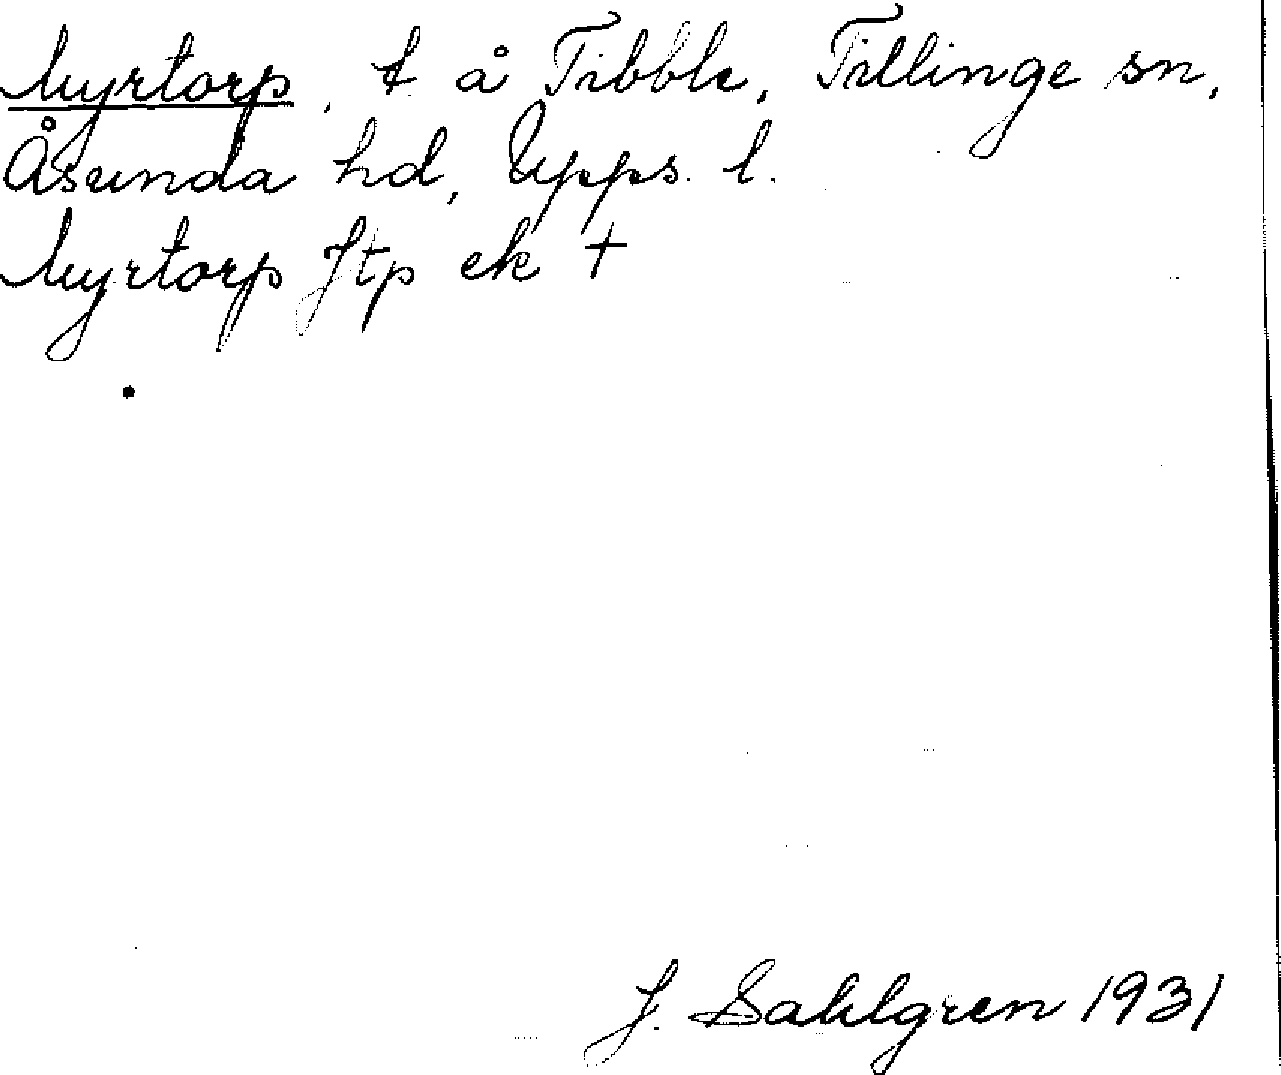 Myrtorp, t å Tibble, Tillinge sn,
Åsunda hd, Upps. l.
Myrtorp Jtp ek +
J. Sahlgren 1931